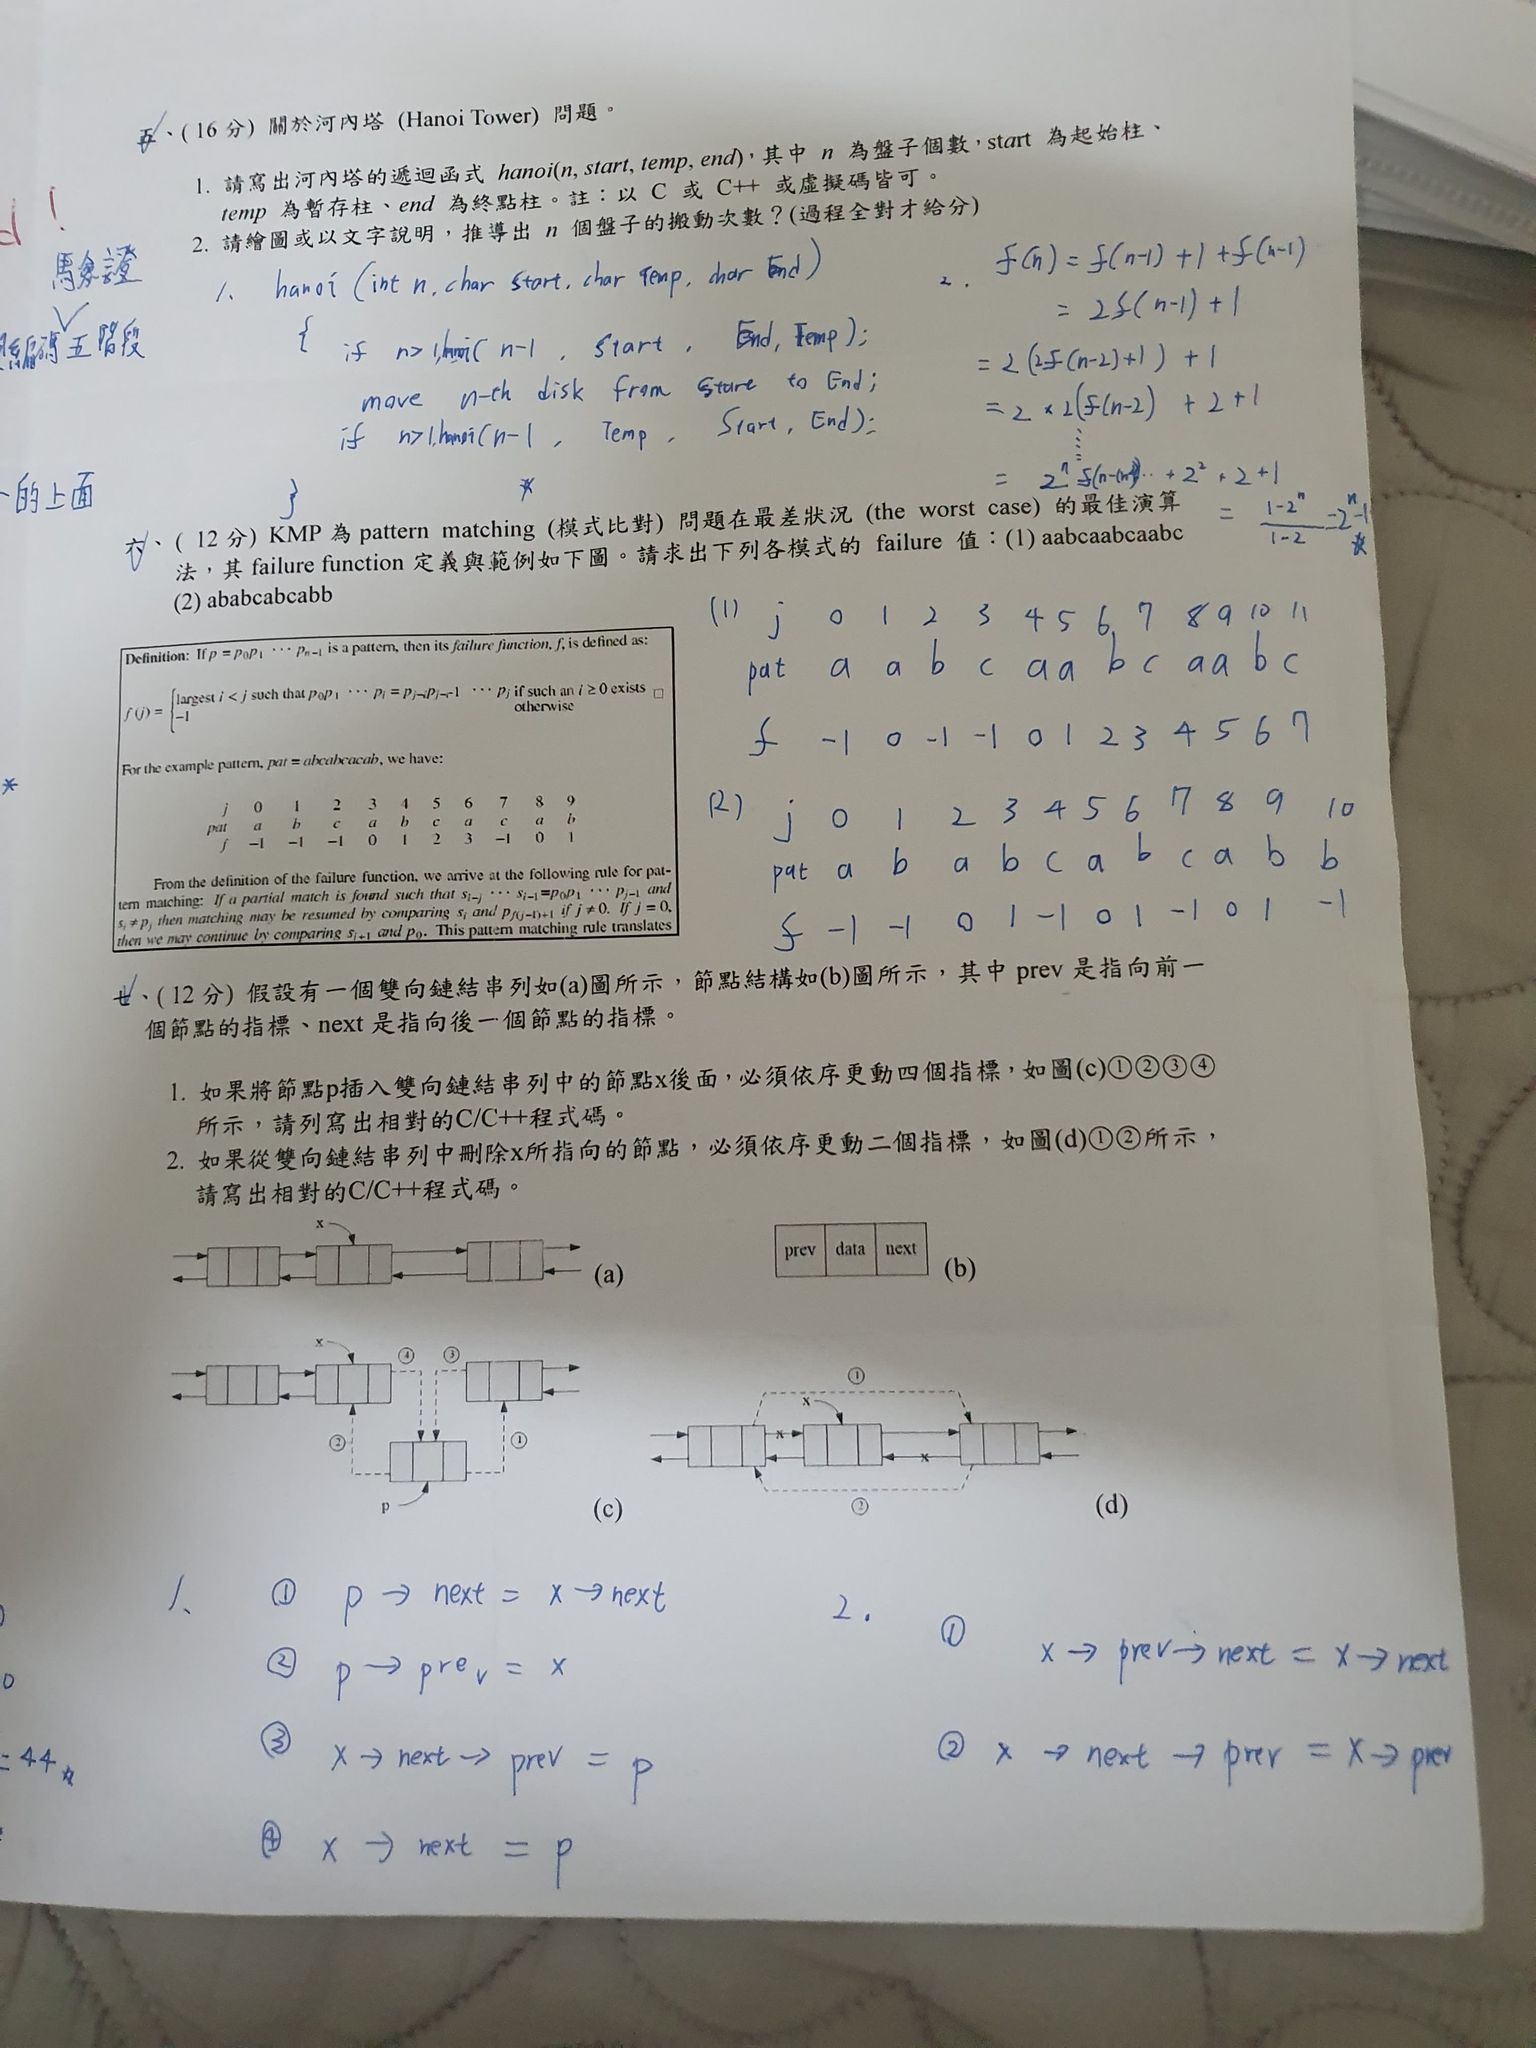 五、(16 分) 關於河內塔 (Hanoi Tower) 問題。
1. 請寫出河內塔的遞迴函式 hanoi(n, start, temp, end),其中 n 為盤子個數,start 為起始柱、
temp 為暫存柱、end 為終點柱。註:以 C 或 C++ 或虛擬碼皆可。
2. 請繪圖或以文字說明,推導出 n 個盤子的搬動次數?(過程全對才給分)
d!
五階段
的上面
*
= 44 *
1. hanoi (int n, char start, char Temp, char End)
{
if n>1, hanoi( n-1 , Start , End, Temp);
move n-th disk from Start to End;
if n>1, hanoi(n-1 , Temp , Start, End);
}
*
2. f(n) = f(n-1) + 1 + f(n-1)
= 2f(n-1) + 1
= 2(2f(n-2)+1) + 1
= 2 × 2(f(n-2) + 2 + 1
+ 2² + 2 + 1
= 1-2ⁿ / 1-2 = 2ⁿ-1 *
六、( 12 分) KMP 為 pattern matching (模式比對) 問題在最差狀況 (the worst case) 的最佳演算
法,其 failure function 定義與範例如下圖。請求出下列各模式的 failure 值:(1) aabcaabcaabc
(2) ababcabcabb
Definition: If p = p₀p₁ ⋯ pₙ₋₁ is a pattern, then its failure function, f, is defined as:
f (j) = { largest i < j such that p₀p₁ ⋯ pᵢ = pⱼ₋ᵢpⱼ₋ᵢ₊₁ ⋯ pⱼ if such an i ≥ 0 exists □
−1 otherwise
For the example pattern, pat = abcabcacab, we have:
j 0 1 2 3 4 5 6 7 8 9
pat a b c a b c a c a b
f −1 −1 −1 0 1 2 3 −1 0 1
From the definition of the failure function, we arrive at the following rule for pat-
tern matching: If a partial match is found such that sᵢ₋ⱼ ⋯ sᵢ₋₁=p₀p₁ ⋯ pⱼ₋₁ and
sᵢ ≠ pⱼ then matching may be resumed by comparing sᵢ and p_f(j−1)+1 if j ≠ 0. If j = 0,
then we may continue by comparing sᵢ₊₁ and p₀. This pattern matching rule translates
(1) j 0 1 2 3 4 5 6 7 8 9 10 11
pat a a b c a a b c a a b c
f -1 0 -1 -1 0 1 2 3 4 5 6 7
(2) j 0 1 2 3 4 5 6 7 8 9 10
pat a b a b c a b c a b b
f -1 -1 0 1 -1 0 1 -1 0 1 -1
七、( 12 分) 假設有一個雙向鏈結串列如(a)圖所示,節點結構如(b)圖所示,其中 prev 是指向前一
個節點的指標、next 是指向後一個節點的指標。
1. 如果將節點p插入雙向鏈結串列中的節點x後面,必須依序更動四個指標,如圖(c)①②③④
所示,請列寫出相對的C/C++程式碼。
2. 如果從雙向鏈結串列中刪除x所指向的節點,必須依序更動二個指標,如圖(d)①②所示,
請寫出相對的C/C++程式碼。
x
(a)
prev data next
(b)
x
④ ③
② ①
p
(c)
①
x
x x
②
(d)
1. ① p → next = x → next
② p → prev = x
③ x → next → prev = p
④ x → next = p
2. ① x → prev → next = x → next
② x → next → prev = x → prev